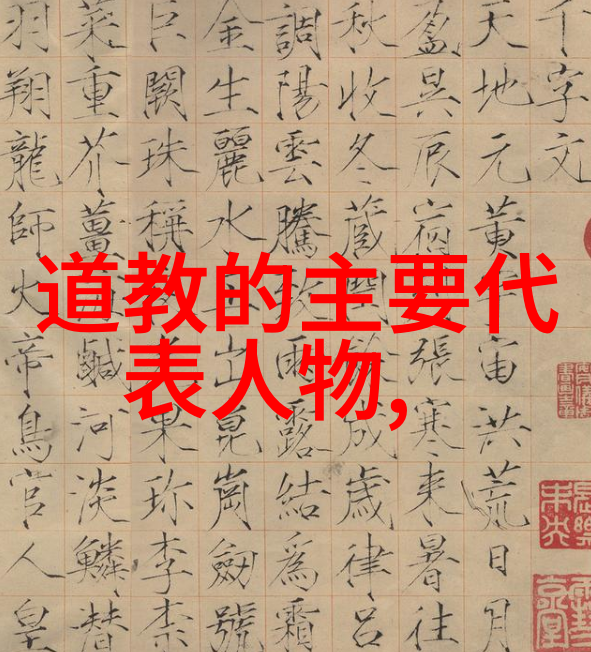 道教的主要代
表人物,
千字文
天地元黃宇宙洪荒日月
盈昃辰宿列張寒来暑往
秋收冬蔵閏餘成歲律吕
調陽雲騰致雨露結為霜
金生麗水玉出崑崗劒號
巨闕珠稱夜光果珍李柰
菜重芥薑海鹹河淡鱗潛
羽翔龍師火帝鳥官人皇